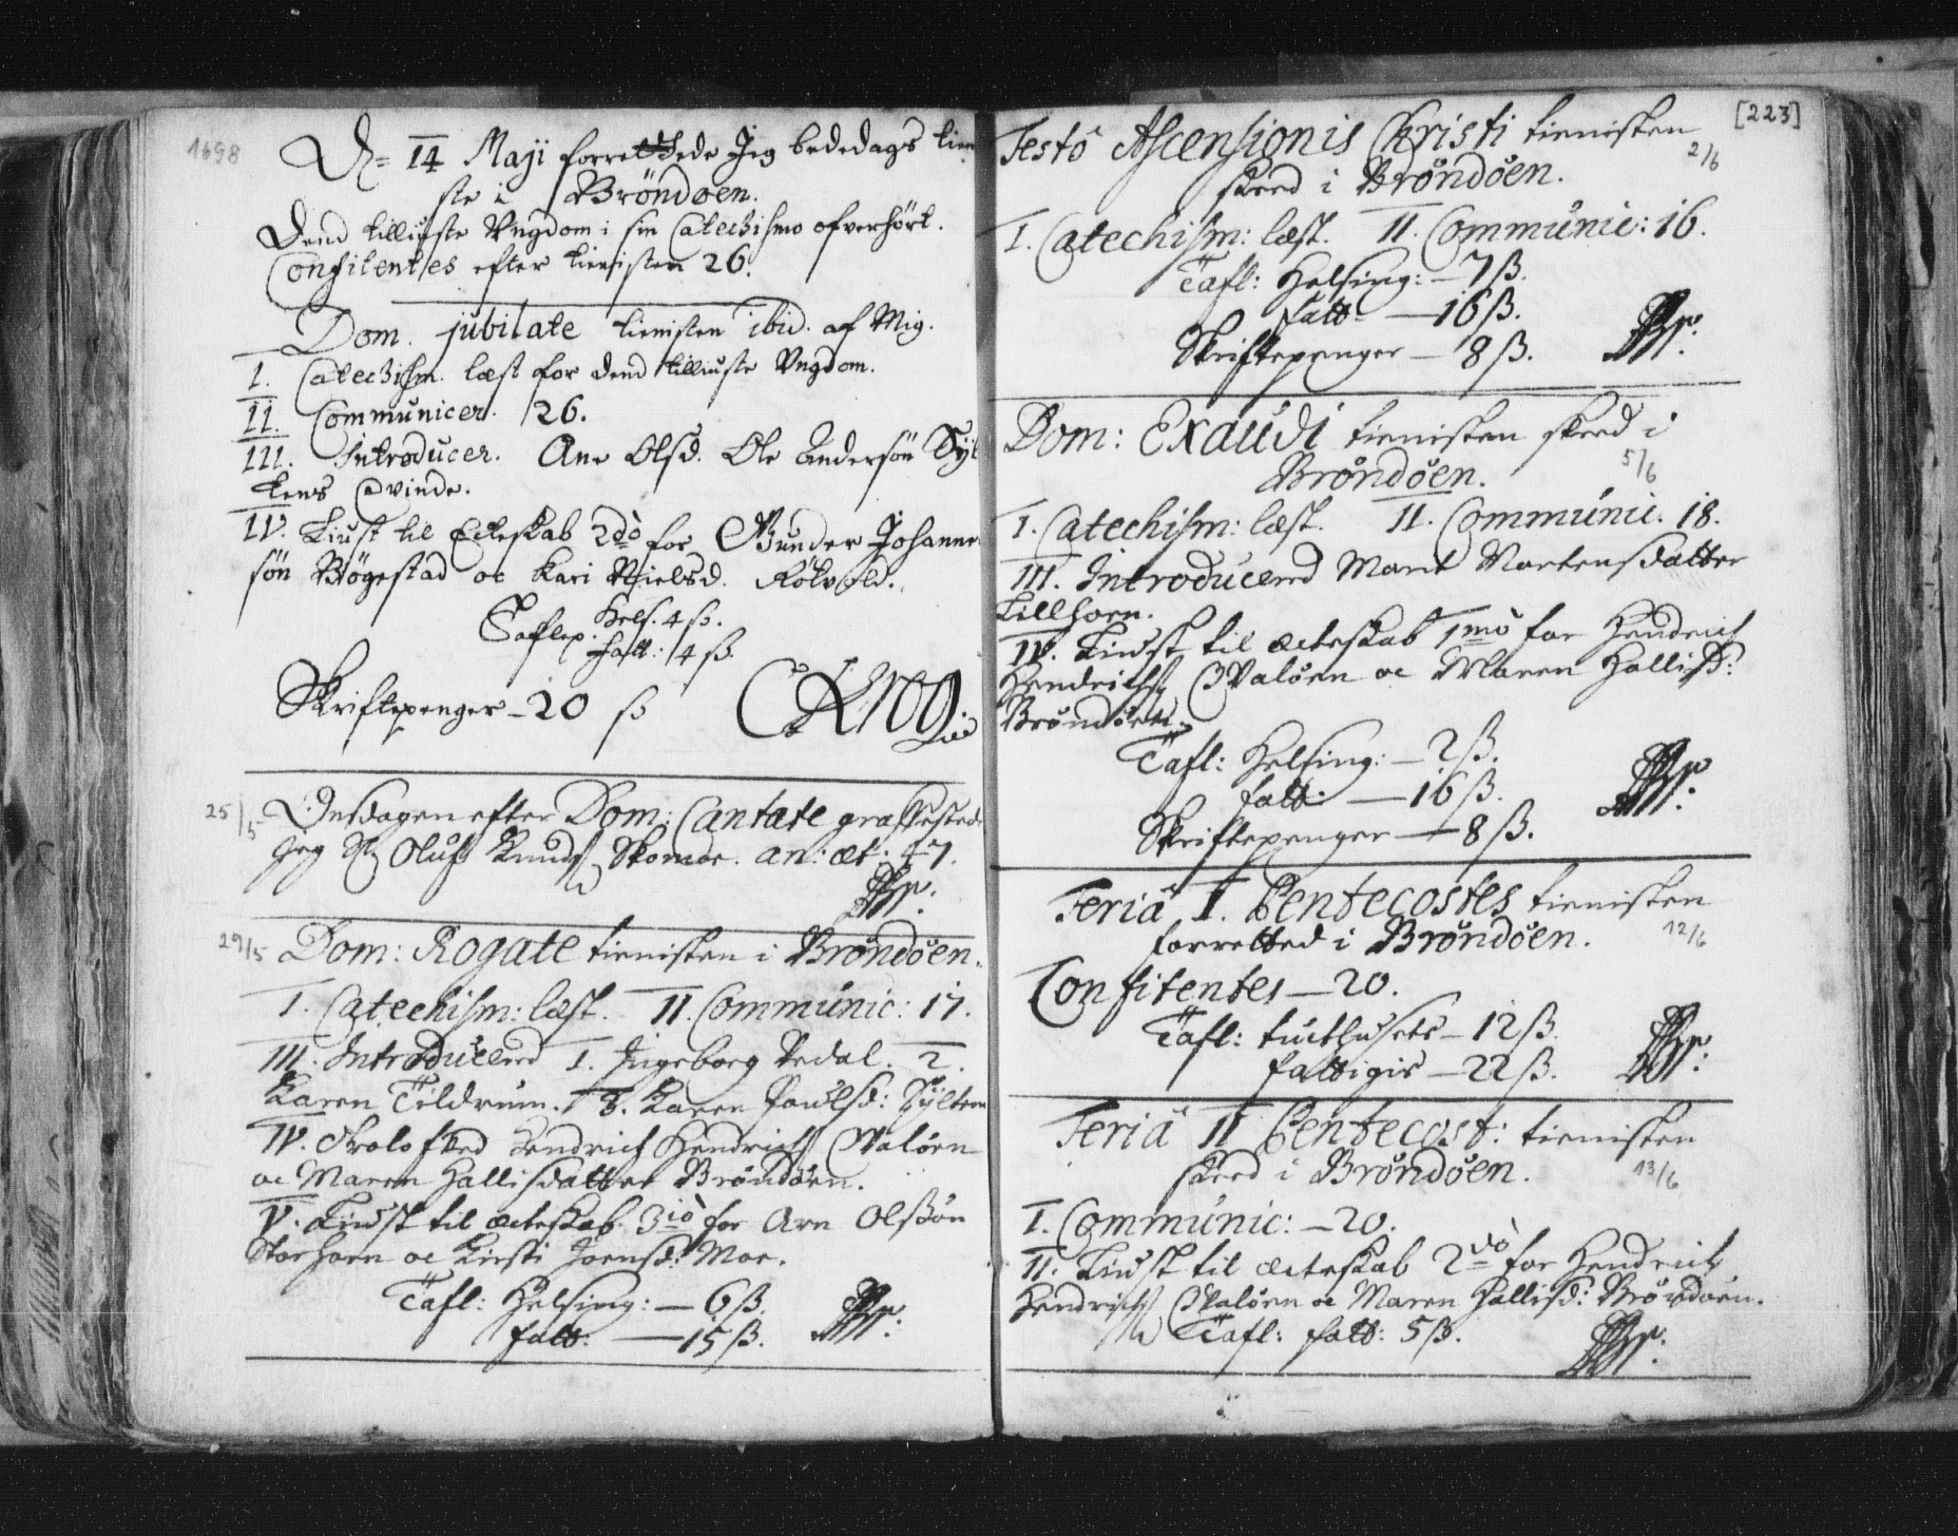 1698
D. 14 Maji forrettede Jeg bededags tien
ste i Bröndøen.
Dend tilliuste Ungdom i sin Catechismo ofverhørt.
Confitentes efter tienisten 26.
Dom. jubilate tienisten ibid. af Mig.
I. Catechism. læst for dend tilliuste Ungdom.
II. Communicer. 26.
III. Introducer. Ane Olsd. Ole Andersøn
kens Qvinde.
IV. Liust til Ecteskab 2do for Gunder Johanne
søn Bögestad oc Kari Nielsd.
Taflep. Hels. 4 ß.
fatt: 4 ß.
Skriftepenger - 20 ß
CKrog
25/5 Onsdagen efter Dom: Cantate graffestede
jeg Oluf Knuds. Skomoe. an: æt: 47.
29/5 Dom: Rogate tienisten i Brøndøen.
I. Catechism: læst. II. Communic: 17.
III. Introducered 1. Ingeborg Vedal. 2.
Karen Tildrum. 3. Karen Poulsd: Tylteren
IV. Troloffved Hendrich Hendrichs. Hvaløen
oc Maren Hallisdatter Brøndøen.
V. Liust til ecteskab 3io for Arn Olssøn
Storhorn oc Kirsti Joensd: Moe.
Tafl: Helsing: — 6ß.
fatt: — 15ß.
[223]
Festo Ascensionis Christi tienisten
2/6
skeed i Brøndøen.
I. Catechism: læst. II. Communic: 16.
Tafl: Helsing: — 7ß.
fatt — 16ß.
Skriftepenger — 8ß.
Dom: Exaudi tienisten skeed i
5/6
Brøndøen.
I. Catechism: læst. II. Communic. 18.
III. Introducered Marit Mortensdatter
Lillhorn.
IV. Liust til ecteskab 1mo for Hendrich
Hendrichs. Hvaløen oc Maren Hallisd:
Brøndøen.
Tafl: Helsing: — 2ß.
fatt: — 16ß.
Skriftepenger — 8ß.
Feria I. Pentecostes tienisten
forretted i Brøndøen.
12/6
Confitentes — 20.
Tafl: tuchthusets — 12ß.
fattigis — 22ß.
Feria II Pentecost: tienisten
skeed i Brøndøen.
13/6
I. Communic: — 20.
II. Liust til ecteskab 2do for Hendrich
Hendrichs. Hvaløen oc Maren Hallisd: Brøndøen.
Tafl: fatt: 5ß.